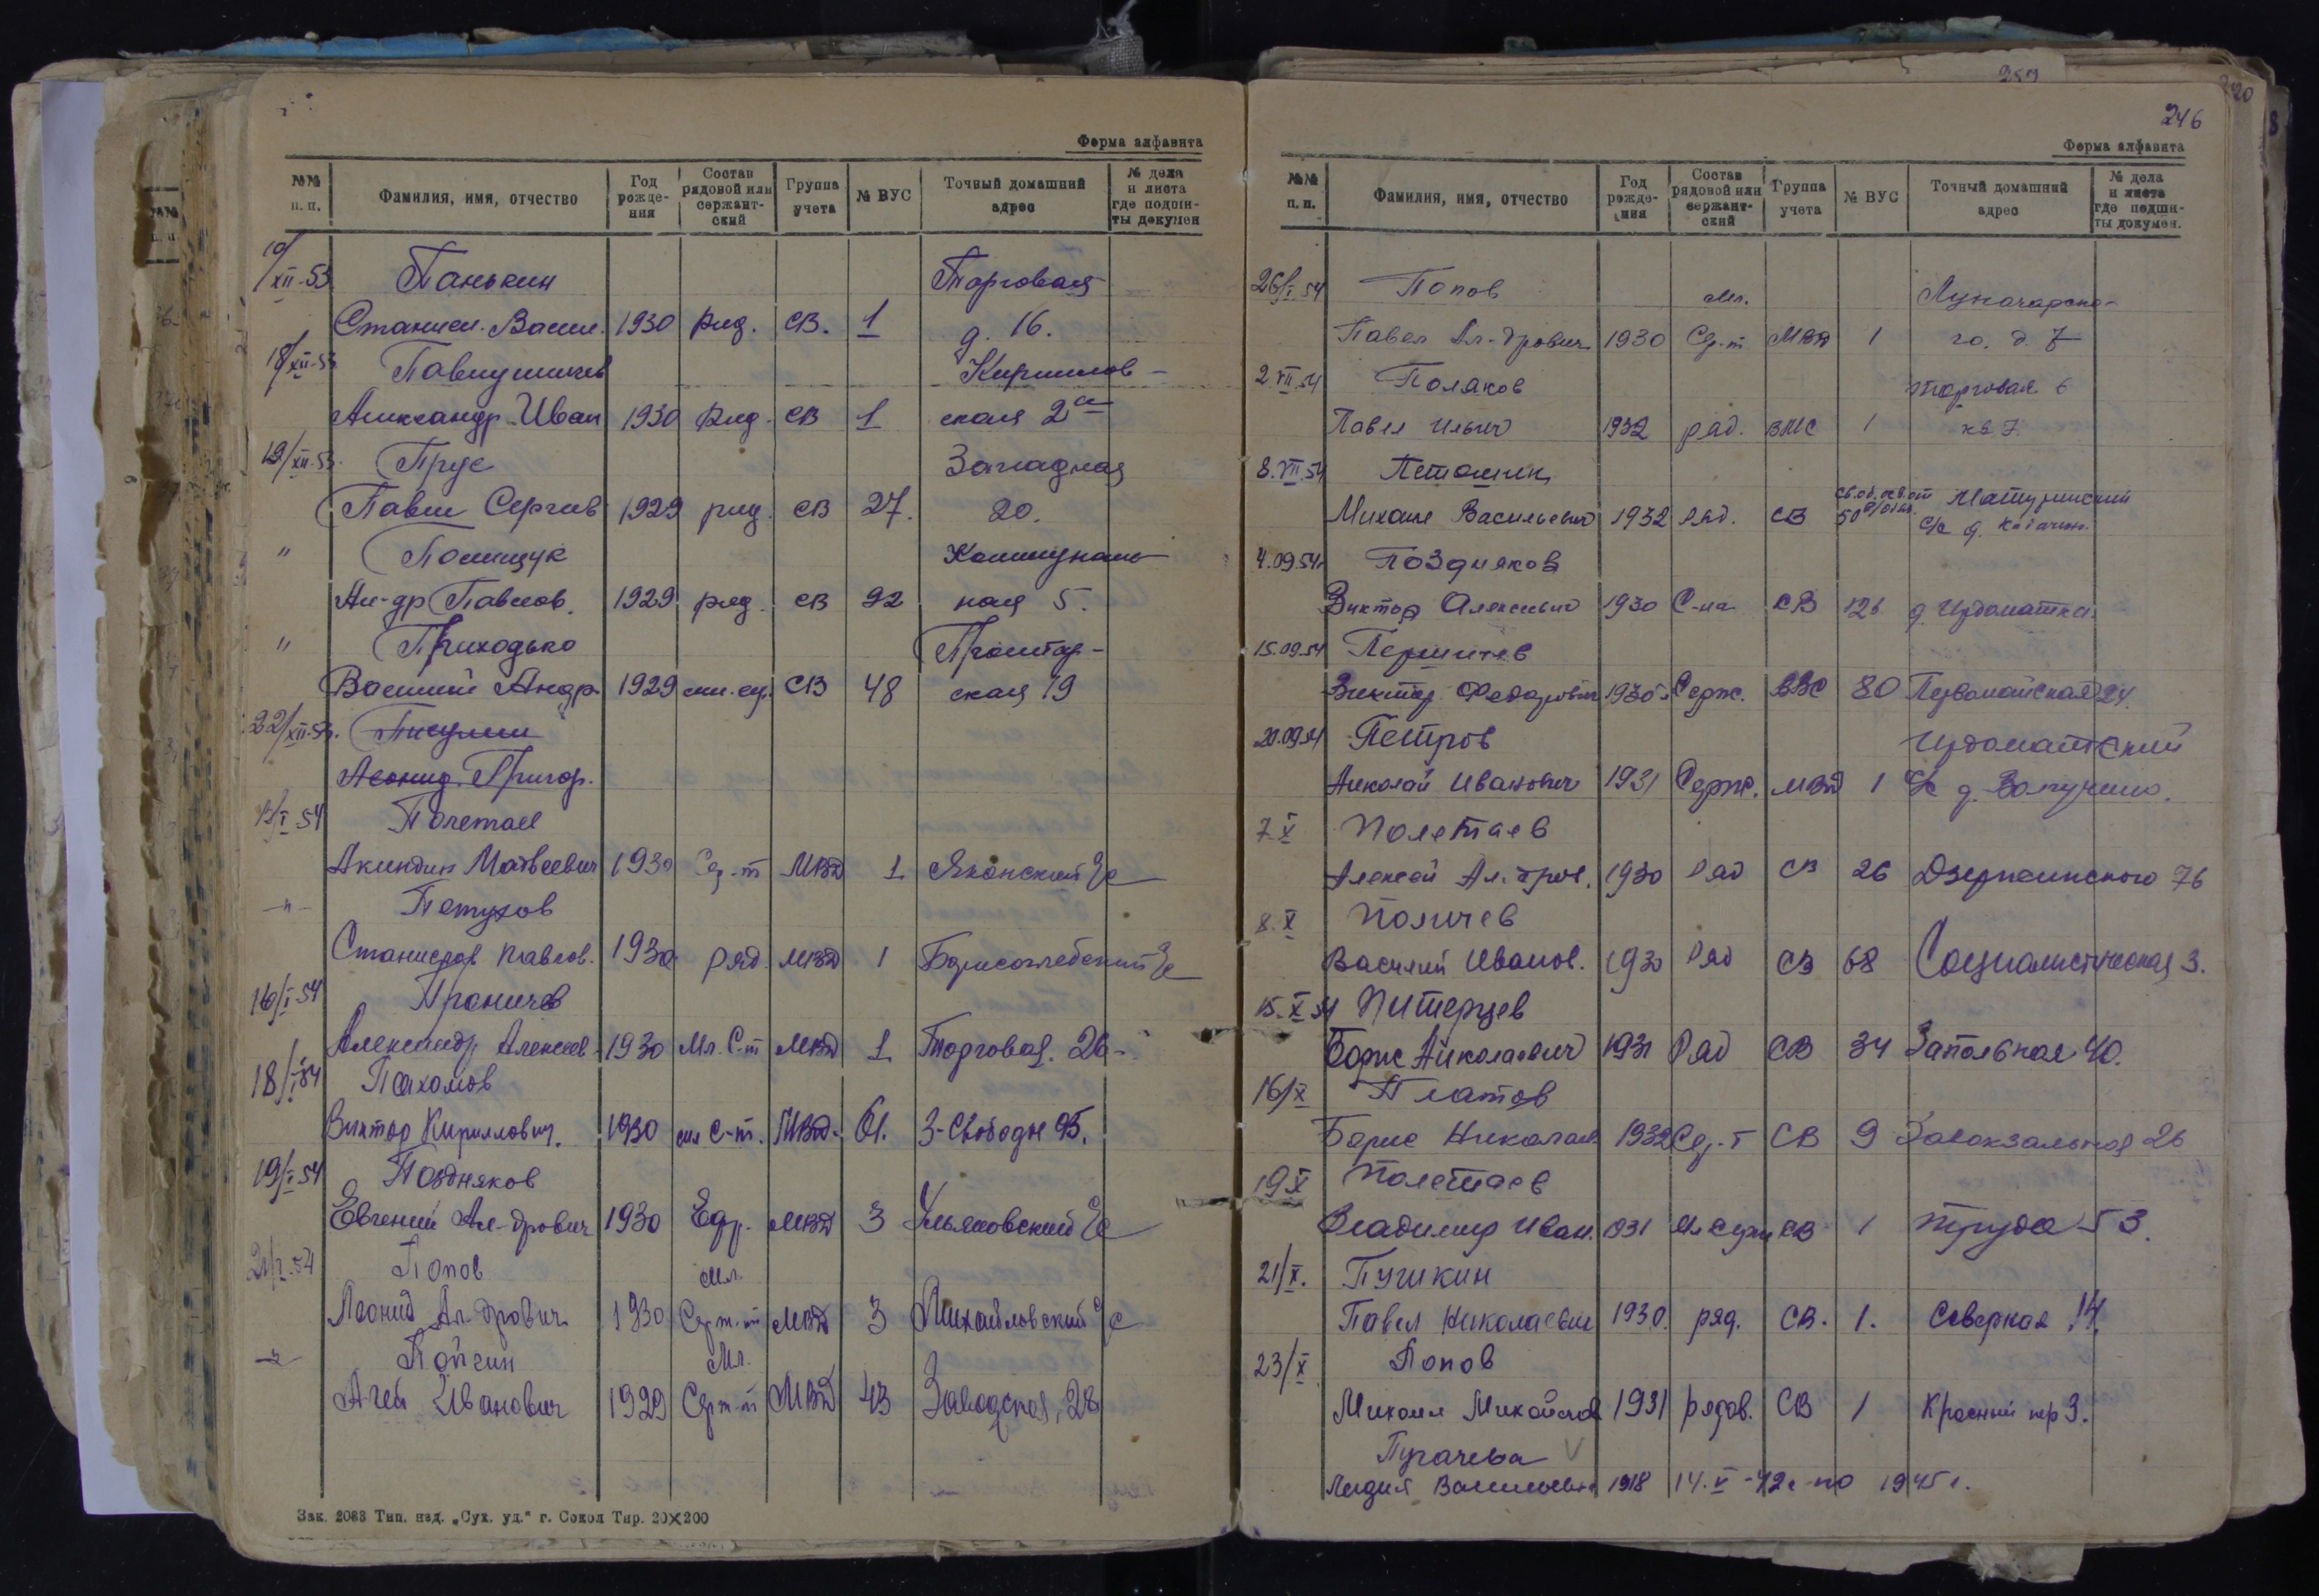 Форма алфавита
№№ п. п. Фамилия, имя, отчество Год рождения Состав рядовой или сержантский Группа учета № ВУС Точный домашний адрес № дела и листа где подшиты докумен
10/XII-53 Панькин Торговая
Станисл. Васил. 1930 ряд. СВ. 1 д. 16.
18/XII-53 Павлушичев Кириллов-
Александр Иван 1930 ряд. СВ 1 ская 2а
19/XII-53. Прус Западная
Павел Сергеев 1929 ряд. СВ 27. 20.
" Полищук Коммуналь
Ал-др Павлов. 1929 ряд. СВ 92 ная 5.
" Приходько Пролетар-
Василий Андр. 1929 мл. с-т. СВ 48 ская 19
22/XII-53. Писулин
Леонид. Григор.
Полетаев
Акиндин Матвеевич 1930 Сер-т МВД 1 Яконский с/с
-"- Петухов
Станислав Павлов. 1930 ряд. МВД 1 Борисоглебский с/с
16/I-54 Проничев
Александр Алексеев- 1930 Мл. С-т МВД 1 Торговая. 26-
18/I-54 Пахомов
Виктор Кириллович. 1930 мл с-т. МВД- 61. 3-Свободы 95.
19/I-54 Поздняков
Евгений Ал-дрович 1930 Ефр. МВД 3 Ульяновский с/с
21/I-54 Попов Мл.
Леонид Ал-дрович 1930 Серж-т МВД 3 Михайловский с/с
-"- Пойгин Мл.
Агей Иванович 1929 Серж-т МВД 43 Заводская, 28
Зак. 2083 Тип. изд. „Сух. уд." г. Сокол Тир. 20×200
246
Форма алфавита
№№ п. п. Фамилия, имя, отчество Год рождения Состав рядовой или сержантский Группа учета № ВУС Точный домашний адрес № дела и листа где подшиты докумен.
26/I-54 Попов Мл. Луначарско-
Павел Ал-дрович 1930 Сер-т МВД 1 го. д. 7
2.VII.54 Поляков Торговая 6
Павел Ильич 1932 ряд. ВМС 1 кв. 7.
8.VII.54 Петошин
Михаил Васильевич 1932 ряд. СВ 50 с/с д.
4.09.54г Поздняков
Виктор Алексеевич 1930 С-на СВ 126 д. Чудоматка.
15.09.54 Першичев
Виктор Федорович 1930г Серж. ВВС 80 Первомайская 24.
20.09.54 Петров Чудоматский
Николай Иванович 1931 Серж. МВД 1 с/с д.
7.X Полетаев
Алексей Ал.дров. 1930 Ряд СВ 26 Дзержинского 76
8.X Поличев
Василий Иванов. 1930 Ряд СВ 68 Социалистическая 3.
15.X 54 Питерцев
Борис Николаевич 1931 Ряд СВ 34 Запольная 40.
16/X Платов
Борис Николаев 1932 Сер-т СВ 9 Завокзальная 26
19 X Полетаев
Владимир Иван. 1931 Мл серж СВ 1 Труда 53.
21/X. Пушкин
Павел Николаевич 1930. ряд. СВ. 1. Северная 14.
23/X Попов
Михаил Михайлов 1931 рядов. СВ 1 Красный пер 3.
Пугачева V
Лидия Васильевна 1918 14.V-42г по 1945 г.